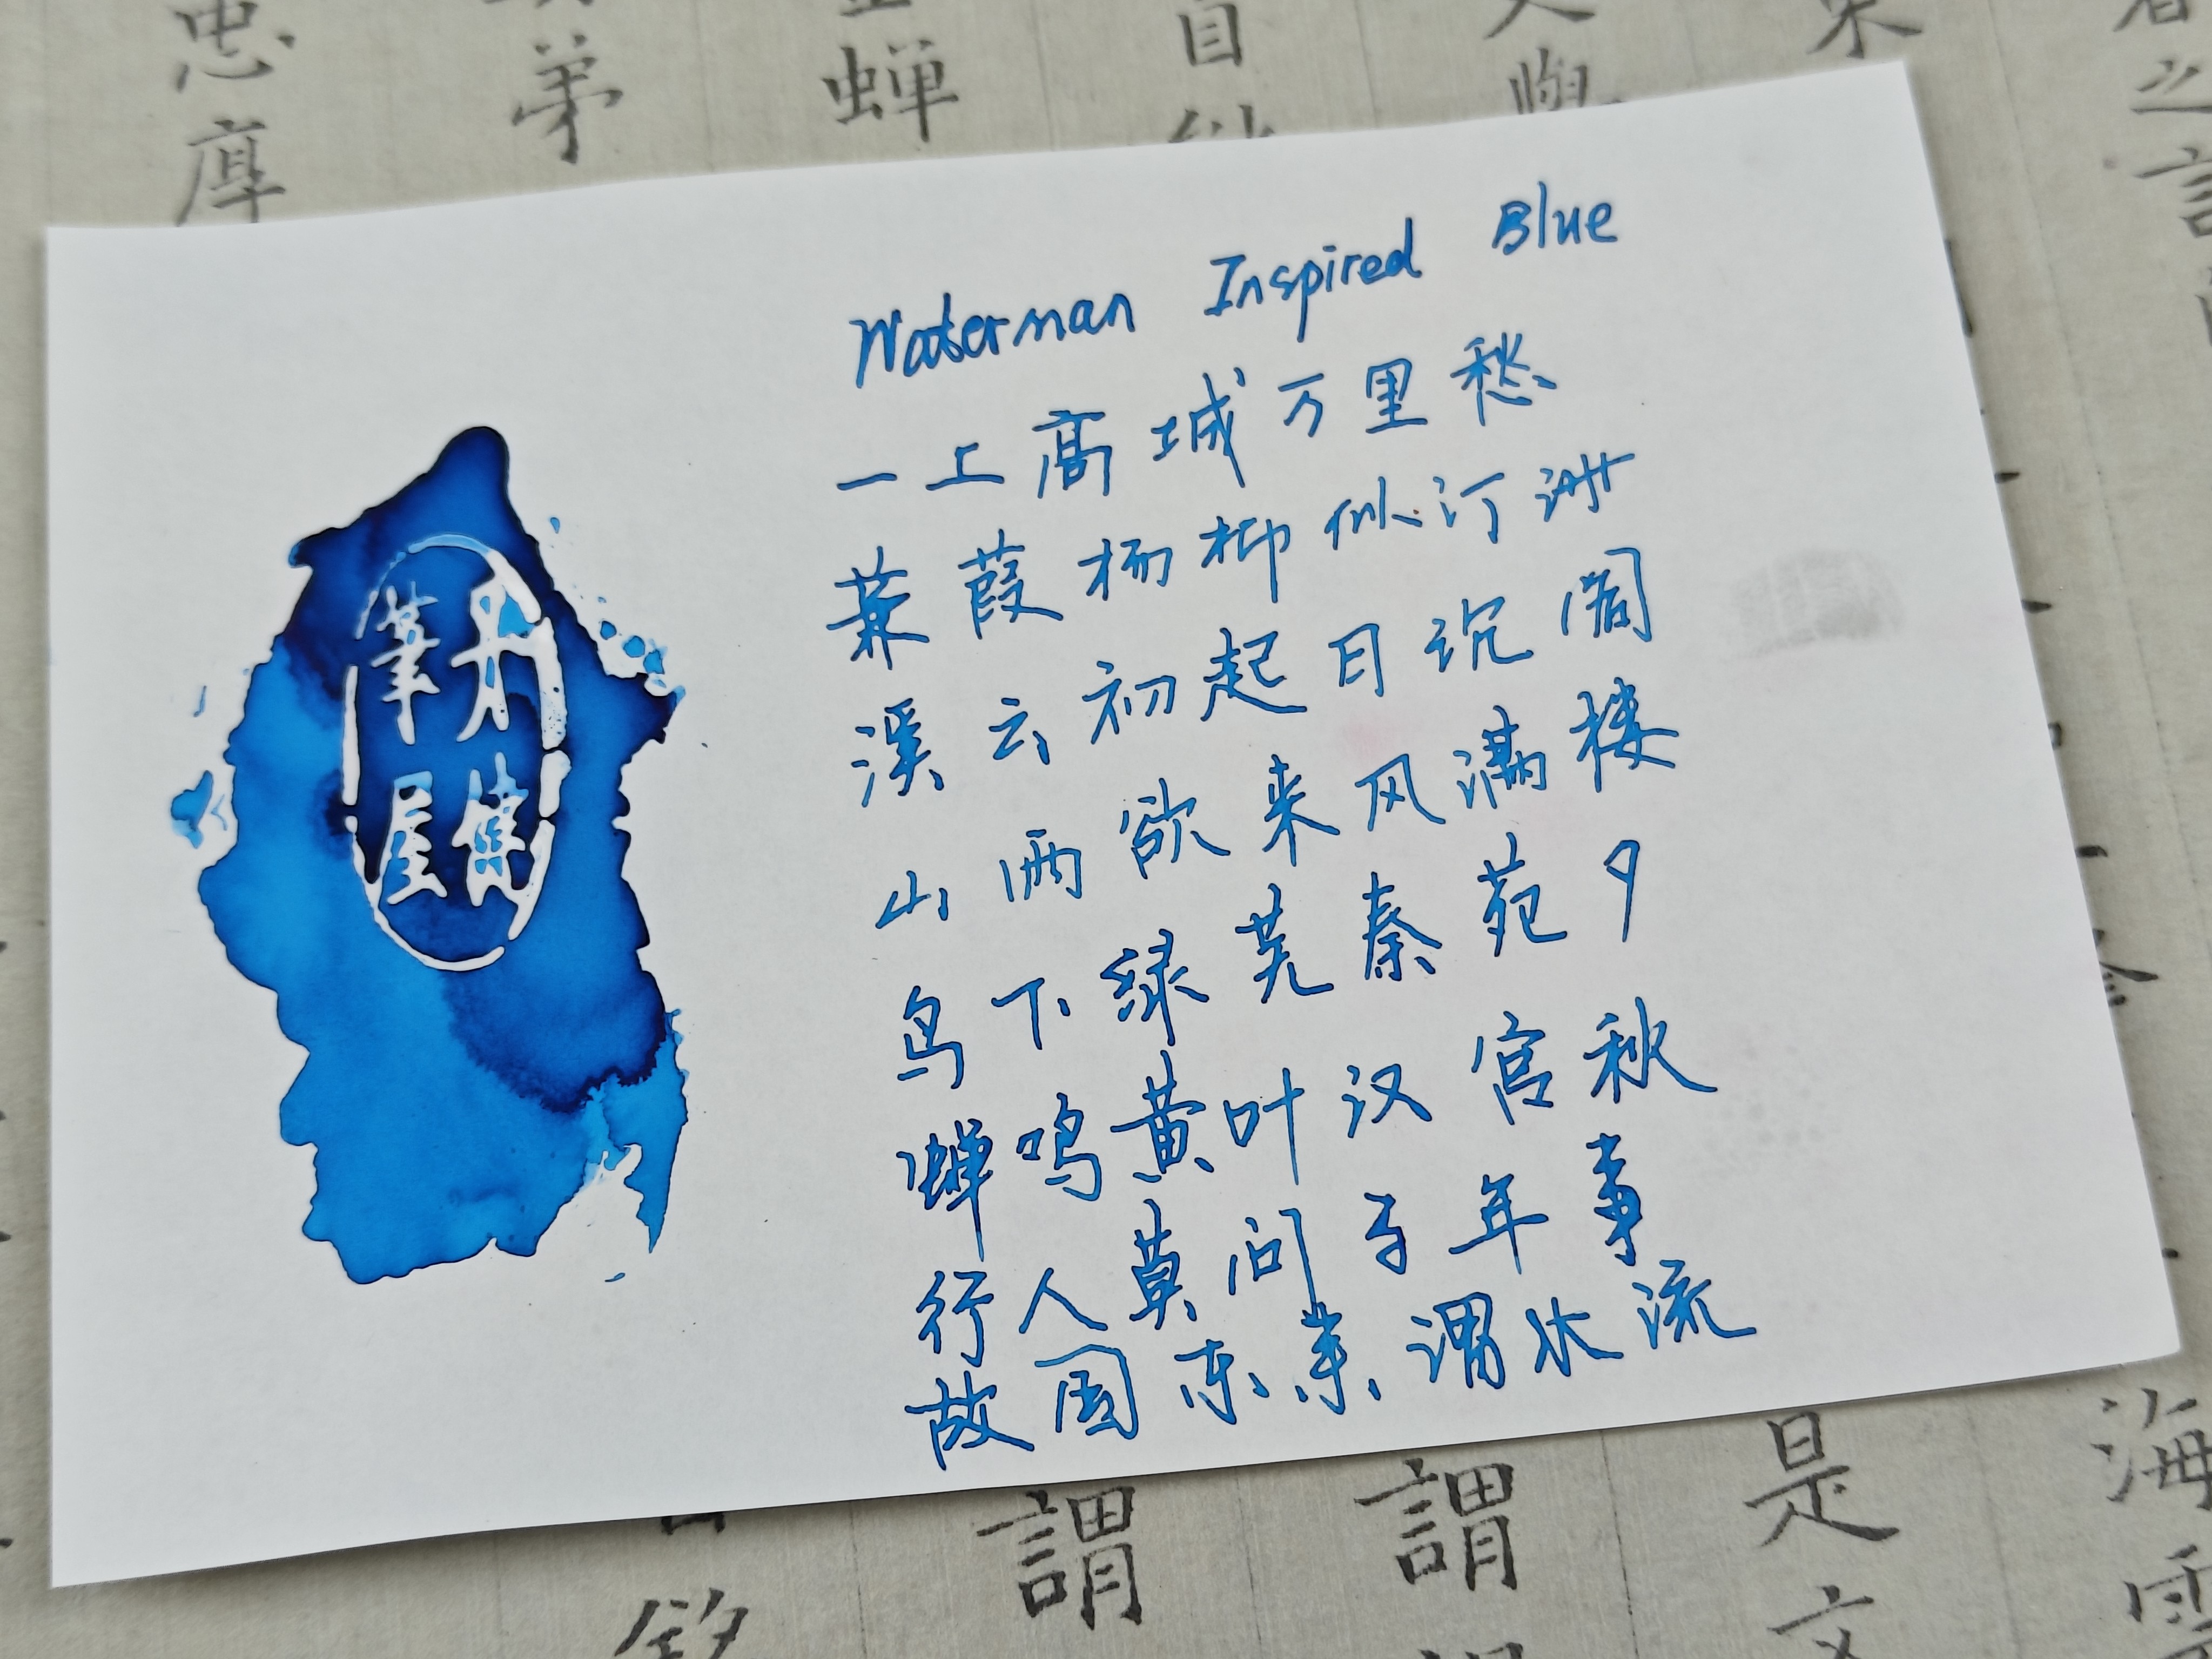 Waterman Inspired Blue
一上高城万里愁
蒹葭杨柳似汀洲
溪云初起日沉阁
山雨欲来风满楼
鸟下绿芜秦苑夕
蝉鸣黄叶汉宫秋
行人莫问当年事
故国东来渭水流
丹
筆
屋
忠 弟 蝉 自
厚
之
謂 謂 是 海
文